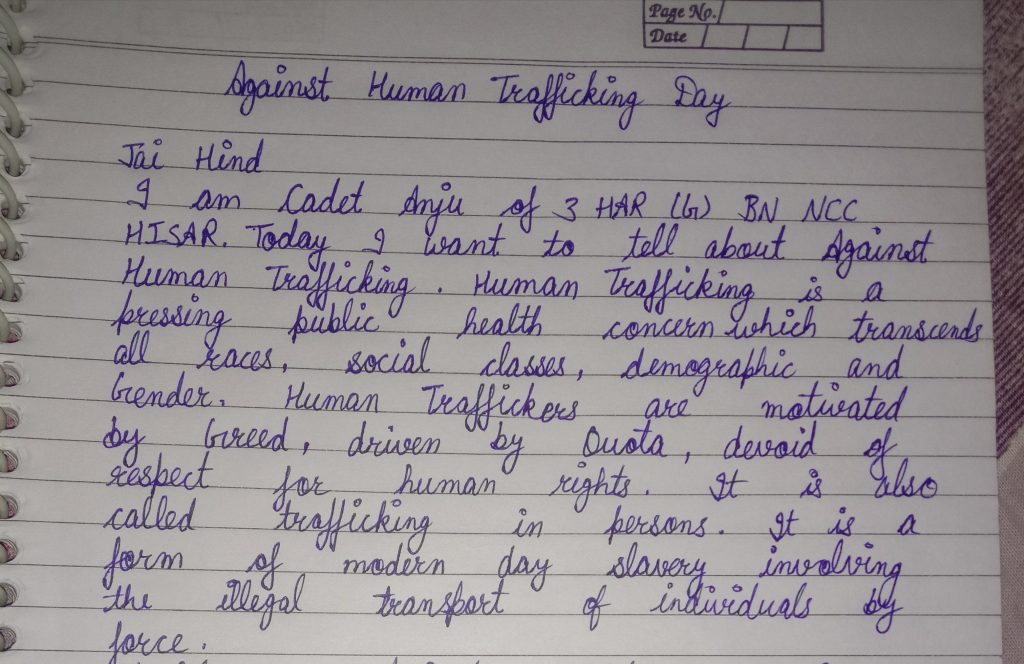 Page No.
Date
Against Human Trafficking Day
Jai Hind
I am Cadet Anju of 3 HAR (G) BN NCC
HISAR. Today I want to tell about Against
Human Trafficking. Human Trafficking is a
pressing public health concern which transcends
all races, social classes, demographic and
Gender. Human Traffickers are motivated
by Greed, driven by Quota, devoid of
respect for human rights. It is also
called trafficking in persons. It is a
form of modern day slavery involving
the illegal transport of individuals by
force.